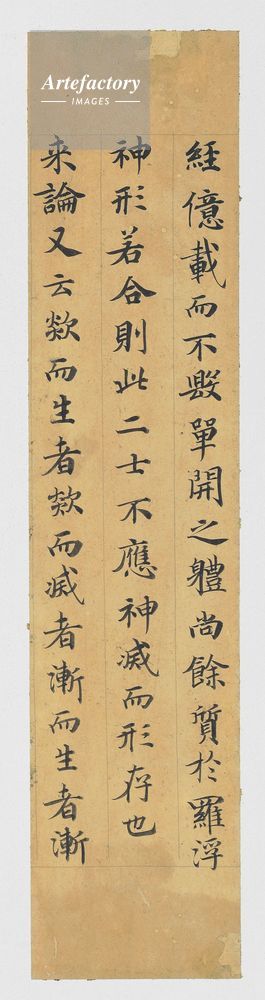 Artefactory
IMAGES
經億載而不毀單開之軆尚餘質於羅浮
神形若合則此二士不應神滅而形存也
来論又云欻而生者欻而滅者漸而生者漸